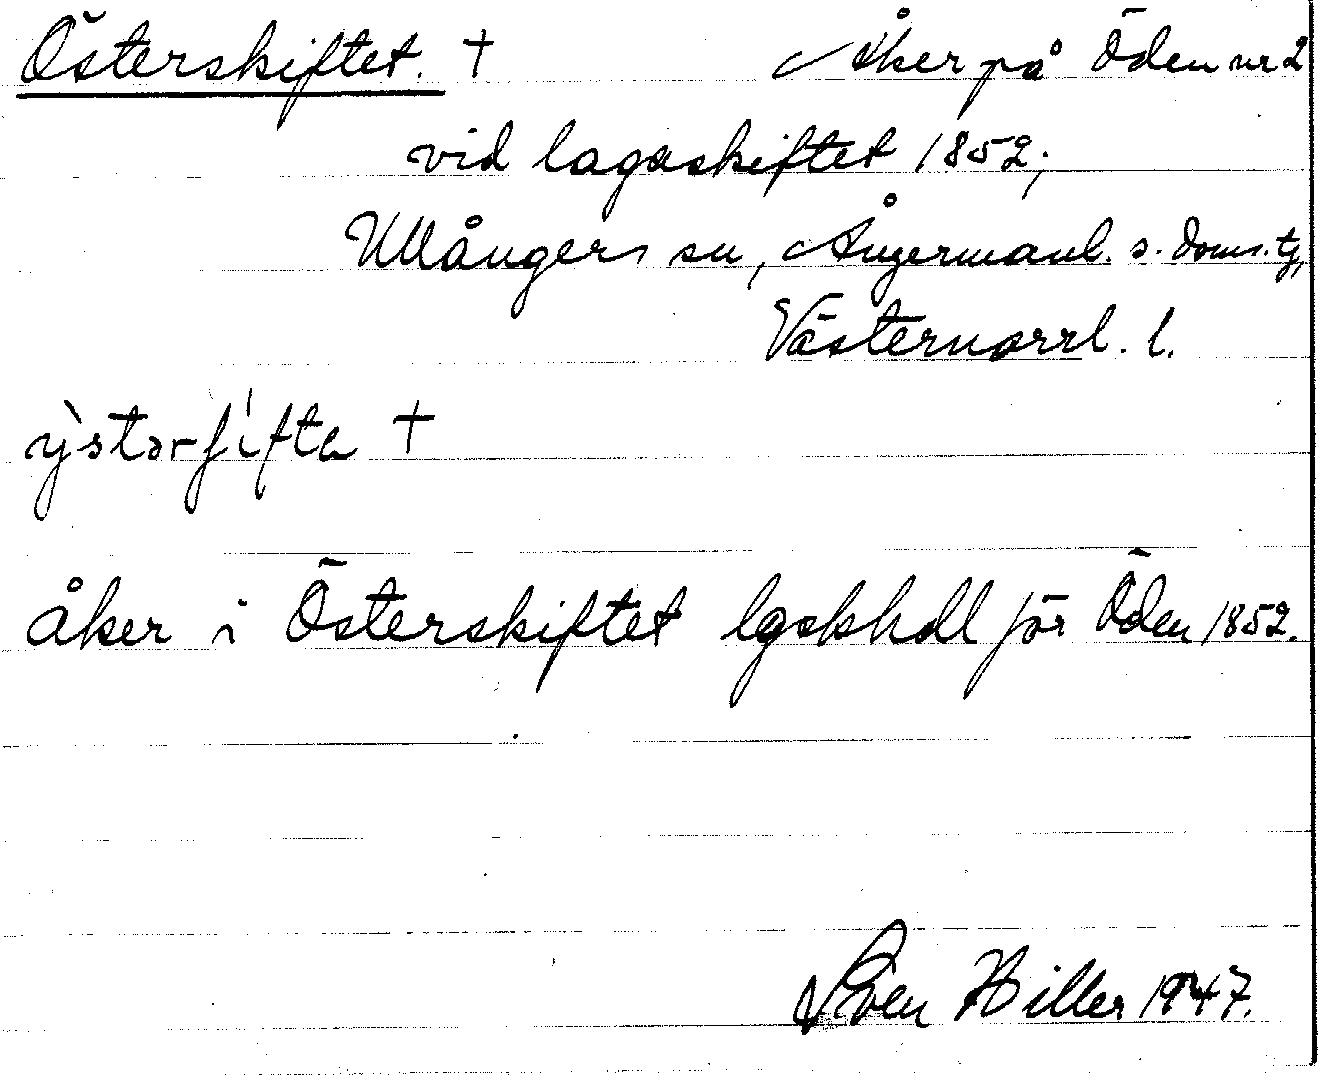 Österskiftet. † Åker på Öden nr 2
vid lagaskiftet 1852;
Ullångers sn, Ångermanl. s. doms. tg,
Västernorrl. l.
åker i Österskiftet lgskhdl för Öden 1852.
Sven Hiller 1947.